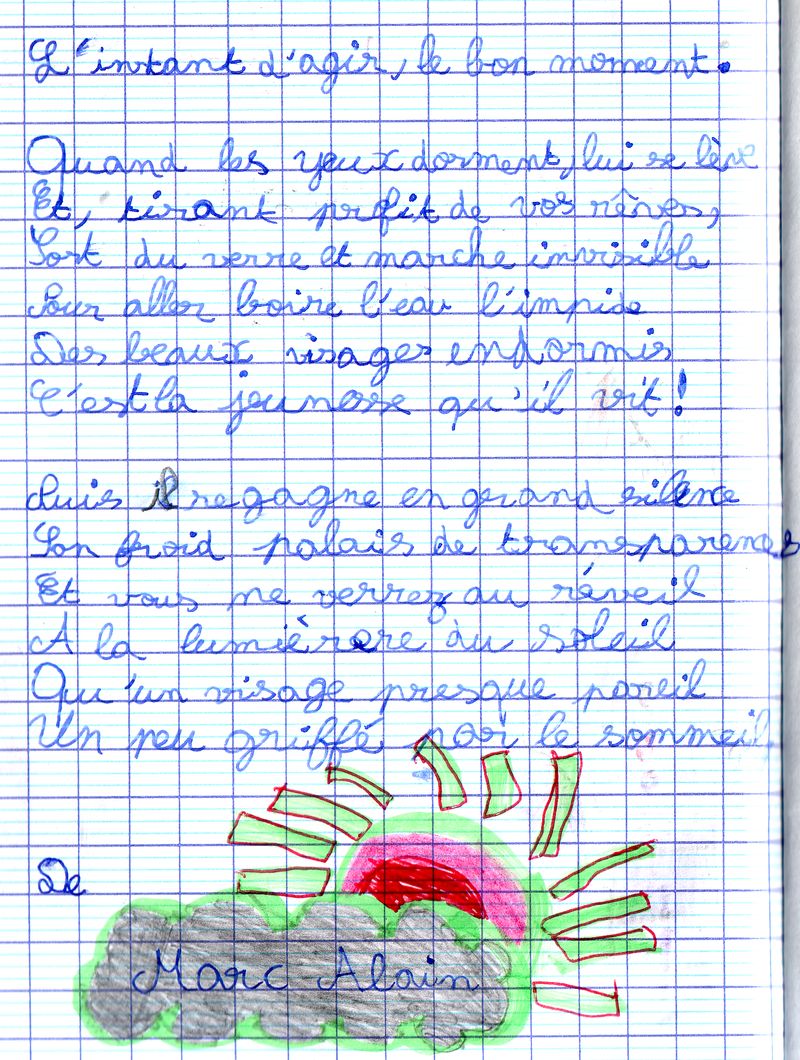 L'instant d'agir, le bon moment.
Quand les yeux dorment, lui se lève
Et, tirant profit de vos rêves,
Sort du verre et marche invisible
Pour aller boire l'eau l'impide
Des beaux visages endormis
C'est la jeunesse qu'il vit !
Puis il regagne en grand silence
Son froid palais de transparences
Et vous ne verrez au réveil
A la lumière du soleil
Qu'un visage presque pareil
Un peu griffé par le sommeil
De
Marc Alain